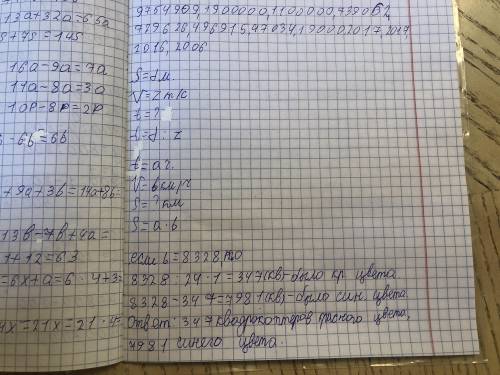 13a+32a=65a
8+78=145
16a-9a=7a
11a-8a=3a
10p-8p=2p
-6b=6b
+9a+3b=14a+8b=
13b-7b+4a=
1+12=63
=6x+a=6·4+3=
4x=21x=21·4=
9764909,1900000,1100000,739062,
729628,496915,47034,190002017,2019
2016,2006
S=dм.
V=zм/с
t=?
t=d:z
t=aч.
V=bкм/ч
S=?км
S=a·b
если b=8328, то
8328:24·1=347(кв)-было кр. цвета
8328-347=7981(кв)-было син. цвета.
Ответ: 347 квадрокоптеров красного цвета,
7981 синего цвета.